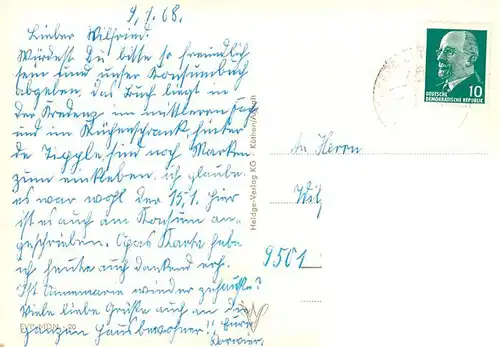 9.1.68.
Lieber Wilfried.
Würdest Du bitte so freundlich
sein und unser Konsumbuch
abgeben, das Buch liegt in
der Kredenz im mittleren Fach
und im Küchenschrank hinter
de sind noch Marken
zum einkleben. ich glaube
es war wohl der 15.1. hier
ist es auch am Konsum an-
geschrieben. Opas Karte habe
ich heute auch dankend erh.
Ist Annemarie wieder zuhause?
Viele liebe Grüße auch an die
ganzen Hausbewohner!! Eure
EVP MDN -.20
Heldge-Verlag KG · Köthen/Anhalt
DEUTSCHE
DEMOKRATISCHE REPUBLIK
10
An Herrn
9501